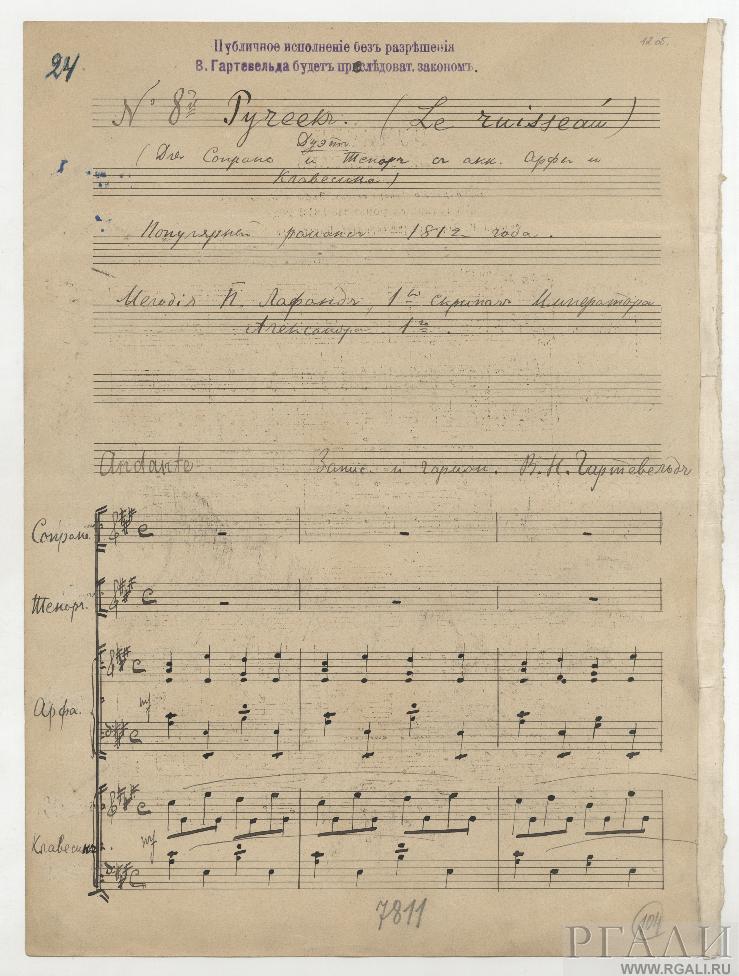 12 об.
24
Публичное исполненіе безъ разрѣшенія
В. Гартевельда будетъ прослѣдоват. закономъ.
№ 8й Ручеекъ. (Le ruisseau)
Дуэтъ
(Для Сопрано и Теноръ съ акк. Арфы и
Клавесина)
Популярный романсъ 1812 года.
Мелодія П. Лафондъ, 1го скрипача Императора
Александра 1го.
Andante Запис. и гармон. В. Н. Гартевельдъ
Сопрано
Теноръ.
Арфа.
mf
Клавесинъ.
mf
7811
104
РГАЛИ
WWW.RGALI.RU